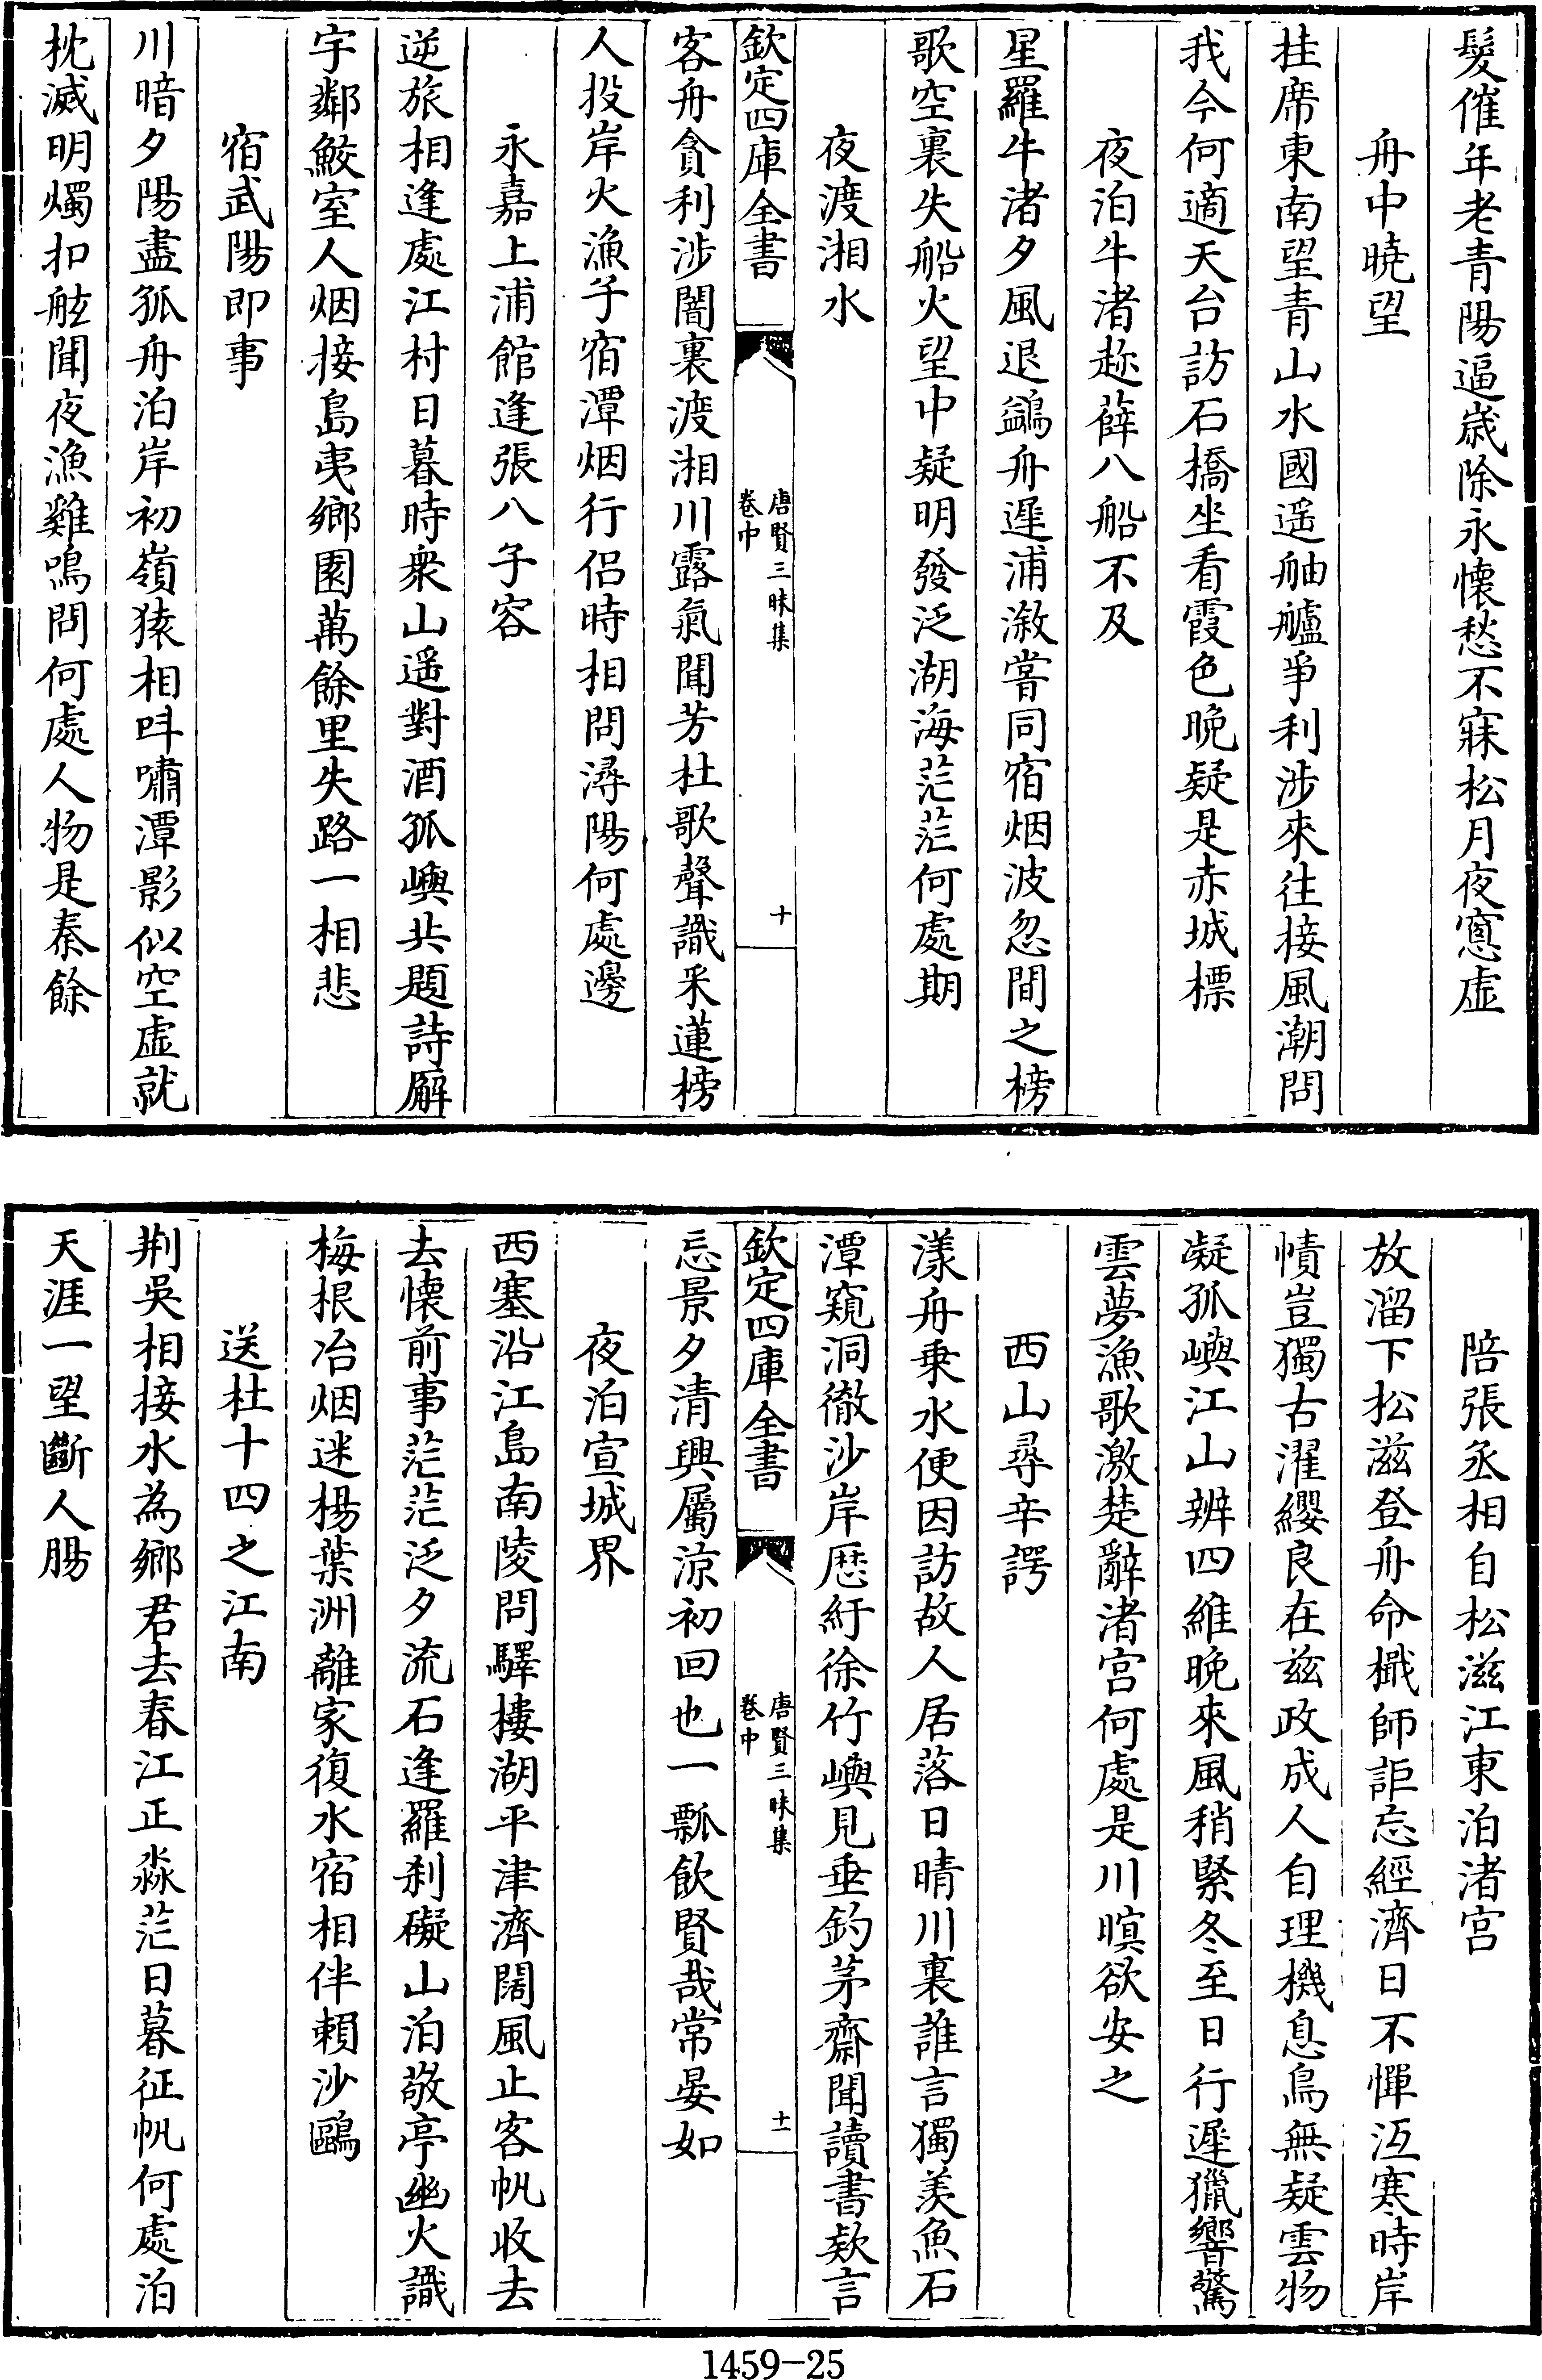 髮催年老青陽逼歲除永懷愁不寐松月夜窻虛
舟中曉望
挂席東南望青山水國遥舳艫爭利涉來往接風潮問
我今何適天台訪石橋坐看霞色晚疑是赤城標
夜泊牛渚趂薛八船不及
星羅牛渚夕風退鷁舟遲浦漵嘗同宿烟波忽間之榜
歌空裏失船火望中疑明發泛湖海茫茫何處期
夜渡湘水
欽定四庫全書
唐賢三昧集
卷中
十
客舟貪利涉闇裏渡湘川露氣聞芳杜歌聲識采蓮榜
人投岸火漁子宿潭烟行侣時相問潯陽何處邊
永嘉上浦館逢張八子容
逆旅相逢處江村日暮時衆山遥對酒孤嶼共題詩廨
宇鄰鮫室人烟接島夷鄉園萬餘里失路一相悲
宿武陽即事
川暗夕陽盡孤舟泊岸初嶺猿相呌嘯潭影似空虛就
枕滅明燭扣舷聞夜漁雞鳴問何處人物是秦餘
陪張丞相自松滋江東泊渚宫
放溜下松滋登舟命檝師詎忘經濟日不憚沍寒時岸
幘豈獨古濯纓良在兹政成人自理機息鳥無疑雲物
凝孤嶼江山辨四維晚來風稍緊冬至日行遲獵響驚
雲夢漁歌激楚辭渚宫何處是川暝欲安之
西山尋辛諤
漾舟乗水便因訪故人居落日晴川裏誰言獨羡魚石
潭窺洞徹沙岸歴紆徐竹嶼見垂釣茅齋聞讀書欵言
欽定四庫全書
唐賢三昧集
卷中
十一
忘景夕清興屬涼初回也一瓢飲賢哉常晏如
夜泊宣城界
西塞沿江島南陵問驛樓湖平津濟闊風止客帆收去
去懷前事茫茫泛夕流石逢羅刹礙山泊敬亭幽火識
梅根冶烟迷楊葉洲離家復水宿相伴賴沙鷗
送杜十四之江南
荆吳相接水為鄉君去春江正淼茫日暮征帆何處泊
天涯一望斷人腸
1459-25